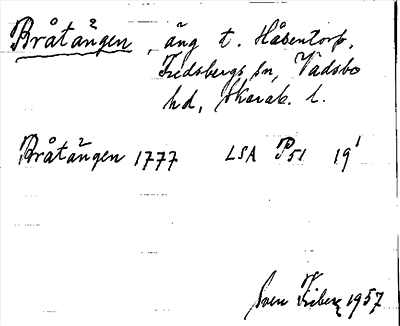 Bråtängen, äng t. Håsentorp,
Fredsbergs sn, Vadsbo
hd, Skarab. l.
Bråtängen 1777 LSA P51 19¹
Sven Friberg 1957